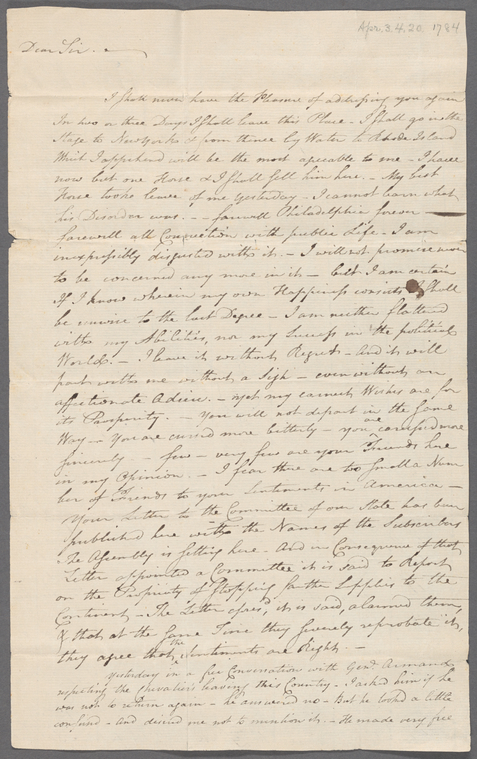 Apr. 3. 4. 20. 1784
Dear Sir.
I shall never have the Pleasure of addressing you again
In two or three Days I shall leave this Place. I shall go in the
Stage to New York & from thence by Water to Rhode Island
Which I apprehend will be the most agreable to me - I have
now but one Horse & I shall sell him here. - My best
Horse took leave of me Yesterday - I cannot learn what
his Disorder was. - - farewell Philadelphia forever -
farewell all Connection with public Life - I am
inexpressibly disgusted with it. - I will not promise never
to be concerned any more in it - but I am certain
If I know wherein my own Happiness consists I shall
be unwise to the last Degree - I am neither flattered
with my Abilities, nor my Success in the political
World. - I leave it without Regret - and it will
part with me without a Sigh - even without an
affectionate Adieu. - yet my earnest Wishes are for
its Prosperity. - You will not depart in the same
Way - You are cursed more bitterly - you are caressed more
sincerely - few - very few are your Friends here
in my Opinion. - I fear there are too small a Num
ber of Friends to your Sentiments in America -
Your Letter to the Committee of our State has been
published here with the Names of the Subscribers
The Assembly is sitting here - And in Consequence of that
Letter appointed a Committee it is said to Report
on the Propriety of Stopping further Supplies to the
Continent - The Letter it is said, alarmed them,
& that at the same Time they severely reprobate it,
they agree that the Sentiments are Right. -
Yesterday in a free Conversation with Genl. Armand
respecting the Chevaliers leaving this Country - I asked him if he
was not to return again - he answered no - But he looked a little
confused - and desired me not to mention it - He made very free